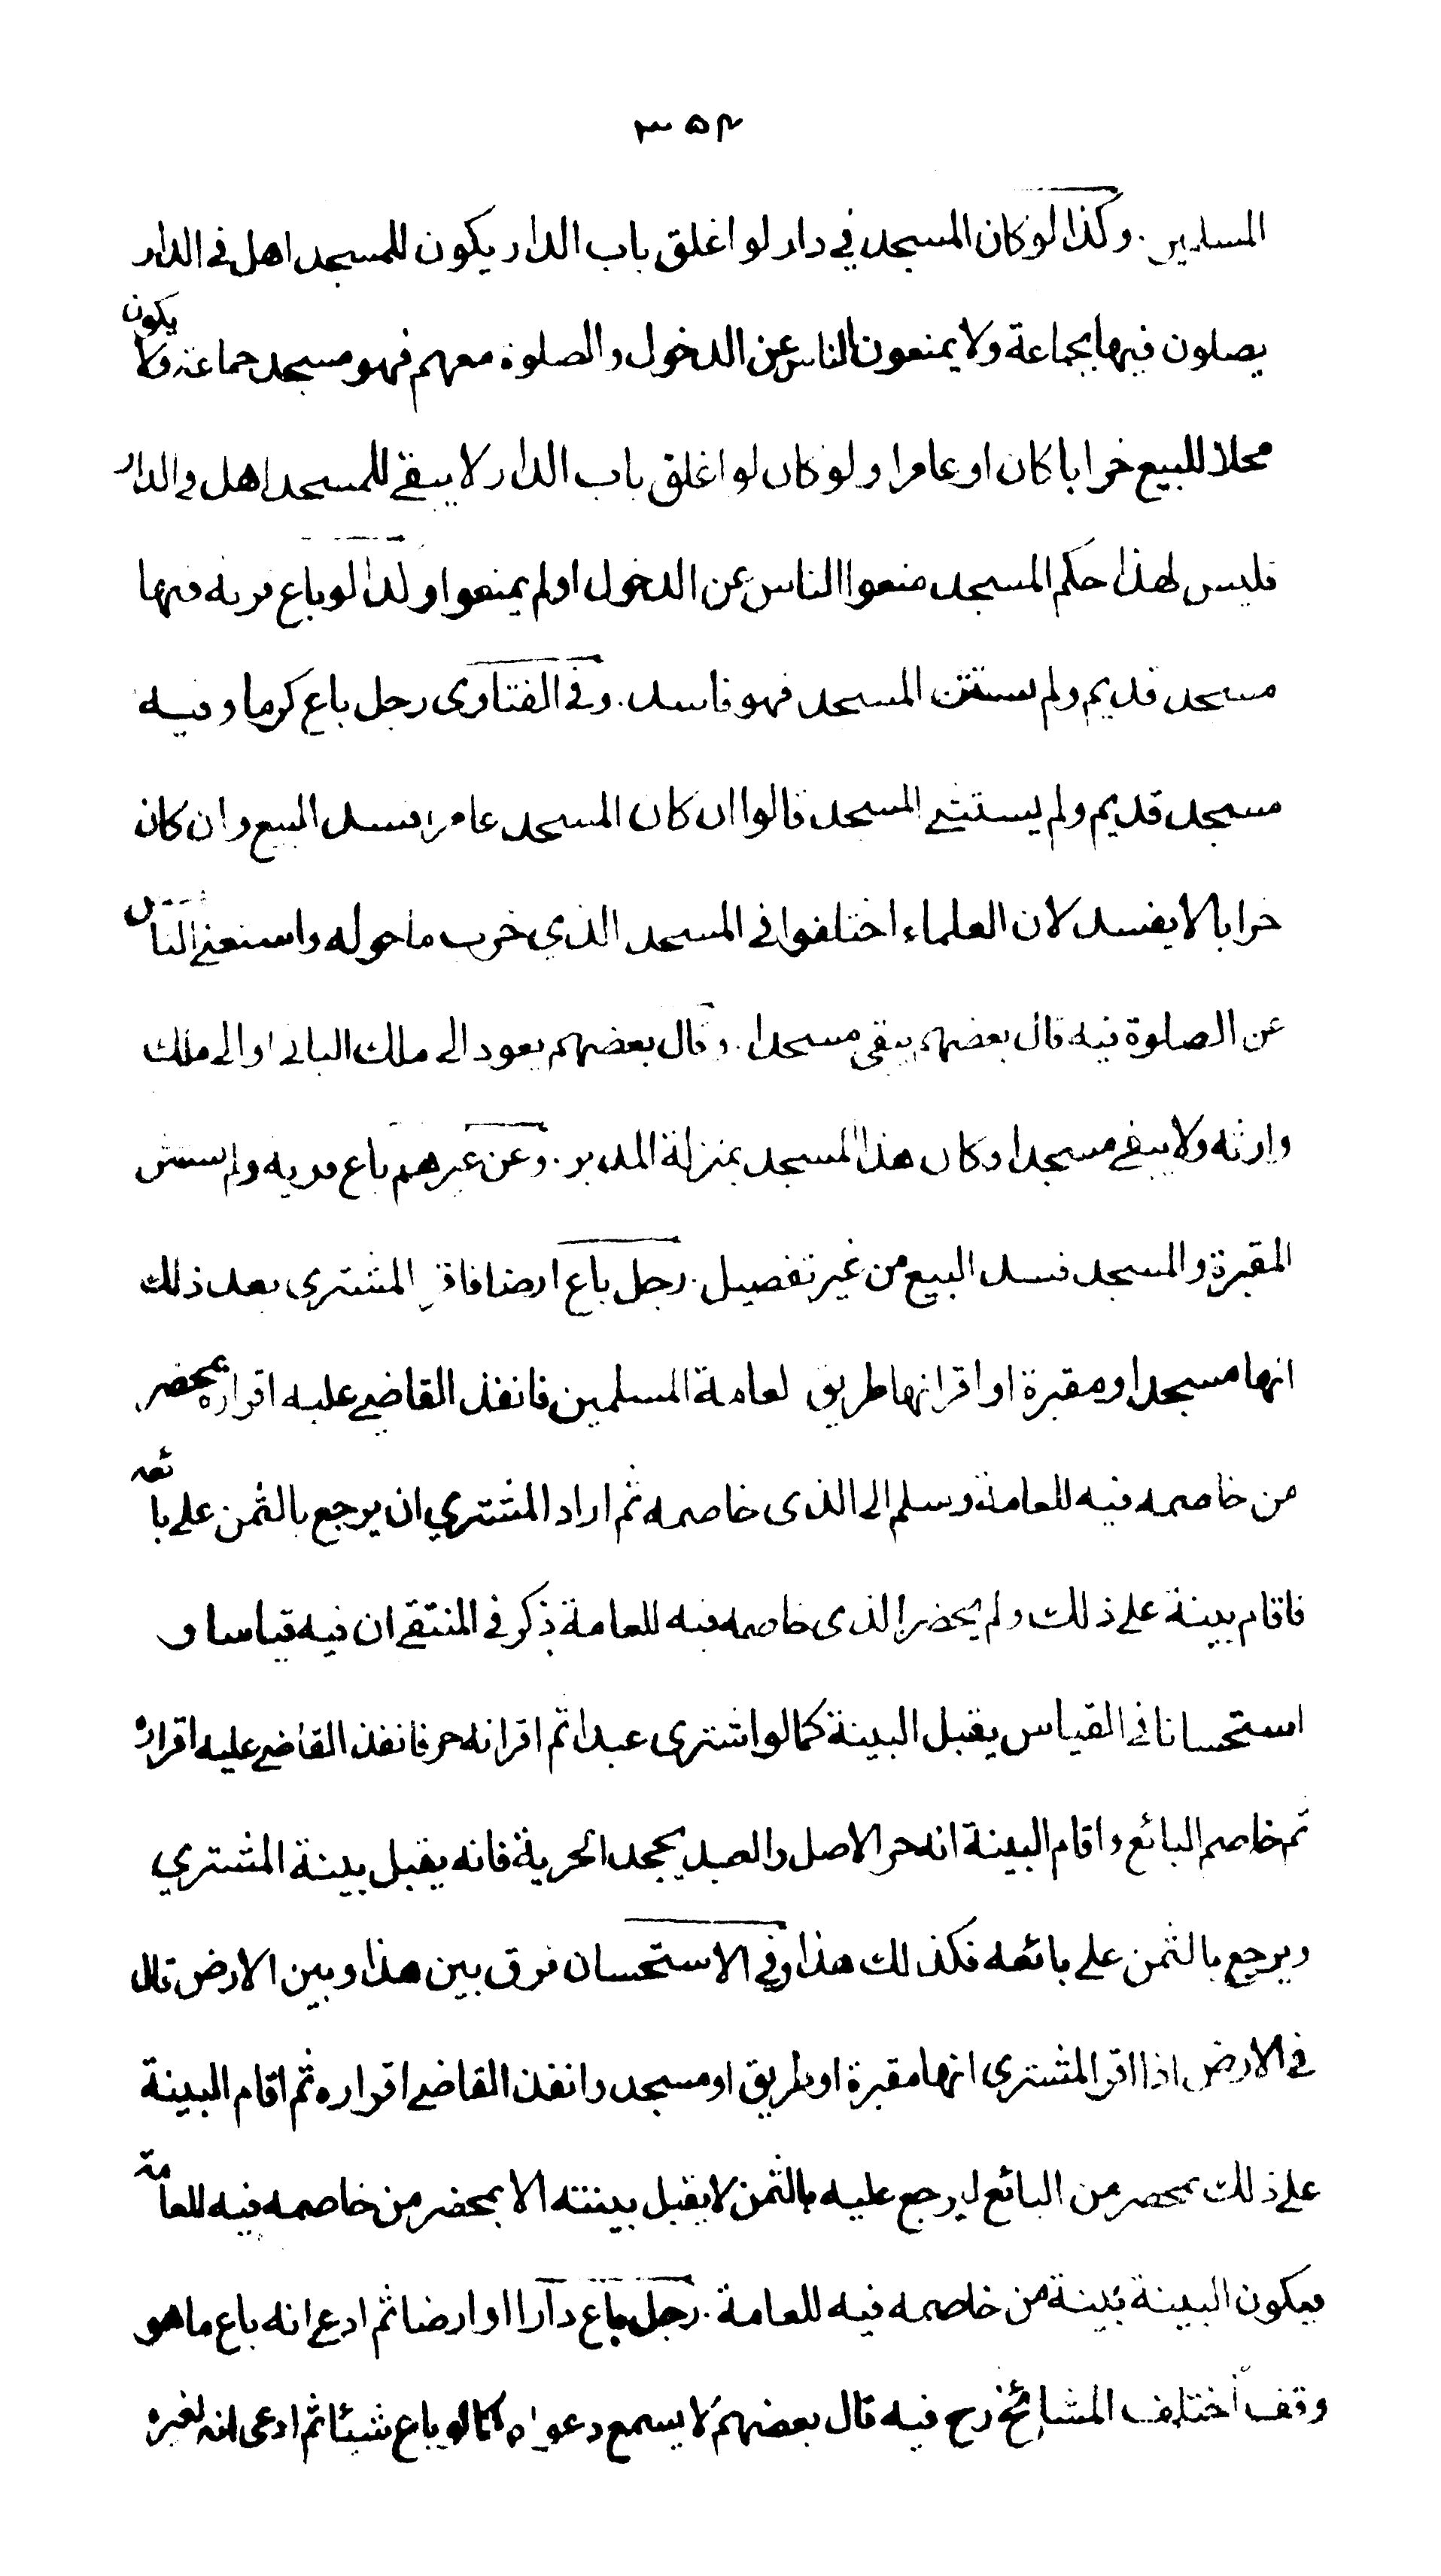 ٣٥٣
المسلمين . وكذا لو كان المسجد في دار لو اغلق باب الدار يكون للمسجد اهل في الدار
يصلون فيها بجماعة ولا يمنعون الناس عن الدخول والصلوة معهم فهو مسجد جماعة ولا يكون
محلا للبيع خرابا كان او عامرا ولو كان لو اغلق باب الدار لا يبقى للمسجد اهل في الدار
فليس لهذا حكم المسجد منعوا الناس عن الدخول او لم يمنعوا ولذا لو باع قرية فيها
مسجد قديم ولم يستثن المسجد فهو فاسد . وفي الفتاوى رجل باع كرما وفيه
مسجد قديم ولم يستثنى المسجد قالوا ان كان المسجد عامرا فسد البيع وان كان
خرابا لا يفسد لان العلماء اختلفوا في المسجد الذي خرب ما حوله واستغنى الناس
عن الصلوة فيه قال بعضهم يبقى مسجدا . وقال بعضهم يعود الى ملك الباني او الى ملك
وارثه ولا يبقى مسجدا وكان هذا المسجد بمنزلة المدبر . وعن غيرهم باع قرية ولم يستثن
المقبرة والمسجد فسد البيع من غير تفصيل . رجل باع ارضا فاقر المشترى بعد ذلك
انها مسجد او مقبرة او اقر انها طريق لعامة المسلمين فانفذ القاضي عليه اقراره بمحضر
من خاصمه فيه للعامة وسلم الى الذى خاصمه ثم اراد المشتري ان يرجع بالثمن على بائعه
فاقام بينة على ذلك ولم يحضر الذى خاصمه فيه للعامة ذكر في المنتقى ان فيه قياسا و
استحسانا في القياس يقبل البينة كما لو اشترى عبدا ثم اقر انه حر فانفذ القاضي عليه اقراره
ثم خاصم البائع واقام البينة انه حر الاصل والعبد يجحد الحرية فانه يقبل بينة المشتري
ويرجع بالثمن على بائعه فكذلك هذا وفي الاستحسان فرق بين هذا وبين الارض قال
في الارض اذا اقر المشترى انها مقبرة او طريق او مسجد وانفذ القاضي اقراره ثم اقام البينة
على ذلك بمحضر من البائع ليرجع عليه بالثمن لا يقبل بينته الا بمحضر من خاصمه فيه للعامة
فيكون البينة بينة من خاصمه فيه للعامة . رجل باع دارا او ارضا ثم ادعى انه باع ما هو
وقف اختلف المشائخ رح فيه قال بعضهم لا يسمع دعواه كما لو باع شيئا ثم ادعى انه لغيره